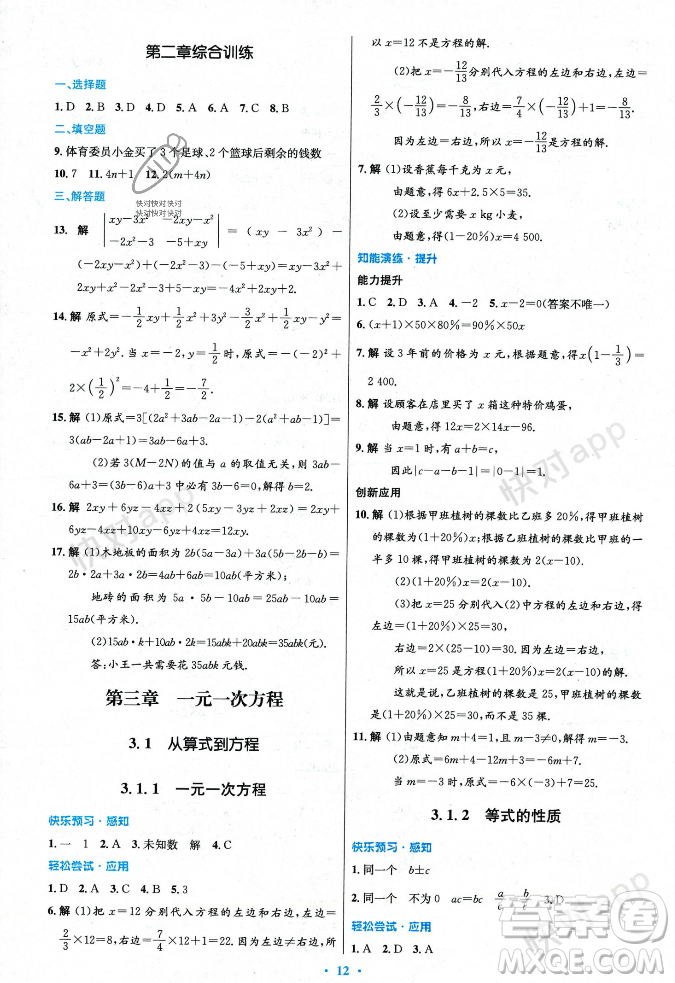 第二章综合训练
一、选择题
1. D 2. B 3. D 4. D 5. A 6. C 7. C 8. B
二、填空题
9. 体育委员小金买了 3 个足球、2 个篮球后剩余的钱数
10. 7 11. 4n+1 12. 2(m+4n)
三、解答题
快对快对快对
快对快对快对
13. 解 |xy−3x² −2xy−x²; −2x²−3 −5+xy| = (xy − 3x²) −
(−2xy−x²) − (−2x²−3) + (−5+xy) = xy−3x²+
2xy+x²+2x²+3−5+xy=4xy−2.
14. 解 原式=−1/2xy+1/2x²+1/2y²−3/2xy−1/2x²=
−xy+1/2y². 当 x=2, y=1/2时, 原式=−2xy+1/2y²=−2×
2×(1/2)²=−4+1/2=−7/2.
15. 解 (1)原式=3[(2a²+3ab−2a−1)−2(a²+ab−1)]=
3(ab−2a+1)=3ab−6a+3.
(2)若 3(M−2N)的值与 a 的取值无关, 则原式=
3ab−6a+3 中必有 3b−6=0, 解得 b=2.
17. 解 (1)木地板的面积为 2b(5a−3a)+3a(5b−2b−b)=
4ab+6ab=10ab(平方米).
地砖的面积为 5a·5b−10ab=25ab−10ab=
15ab(平方米).
(2)15ab·k+10ab·2k=15abk+20abk=35abk(元).
答:小王一共需要花 35abk 元钱.
第三章 一元一次方程
3.1 从算式到方程
3.1.1 一元一次方程
快乐预习·感知
1. 一 1 2. A 3. 未知数 解 4. C
轻松尝试·应用
1. D 2. A 3. A 4. B 5. 3
6. 解 (1)把 x=12 分别代入原方程的左边和右边,左边=
2/3×12=8,右边=7/4×12+1=22. 因为左边≠右边,所
以 x=12 不是方程的解.
(2)把 x=−12/13分别代入方程的左边和右边,左边=
2/3×(−12/13)=−8/13,右边=7/4×(−12/13)+1=−8/13.
因为左边=右边,所以 x=−12/13是原方程的解.
7. 解 (1)设香蕉每千克为 x 元,
由题意,得 6x+2.5×5=35.
(2)设至少需要 x kg 小麦,
由题意,得(1−10%)x=4 500.
知能演练·提升
能力提升
1. C 2. A 3. A 4. −2 5. x−2=0(答案不唯一)
6. (x+1)×50×80%=90%×50x
7. 解 设 3 年前的价格为 x 元,根据题意,得 x(1−1/3)=
2 400.
8. 解 设顾客在店里买了 x 箱这种特价鸡蛋,
由题意,得 12x=2×14x−96.
9. 解 当 x=1时,有 a+b=c,
因此|c−a−b−1|=|0−1|=1.
创新应用
10. 解 (1)根据甲班植树的棵数比乙班多 20%,得甲班植树
的棵数为(1+20%)x;根据乙班植树的棵数比甲班的一
半多 10 棵,得甲班植树的棵数为 2(x−10).
(2)(1+20%)x=2(x−10).
(3)把 x=25 分别代入(2)中方程的左边和右边,得
左边=(1+20%)×25=30,
右边=2×(25−10)=30.
因为左边=右边,所以 x=25 是方程(1+20%)x=
2(x−10)的解.
这就是说乙班植树的棵数是 25,甲班植树的棵数
是 30,而不是 35 棵.
11. 解 (1)由题意知 m+4=1,所以 m=−3.
(2)原式=6m+4−4m+2=2m+6.
当 m=1/2时,原式=2×1/2+6=7.
3.1.2 等式的性质
快乐预习·感知
1. 同一个 b±c
2. 同一个 不为 0 ac=bc a/c=b/c 3. D
轻松尝试·应用
1. A 2. D 3. A
·12·
快对app
快对app
快对app
快对app
答案圈